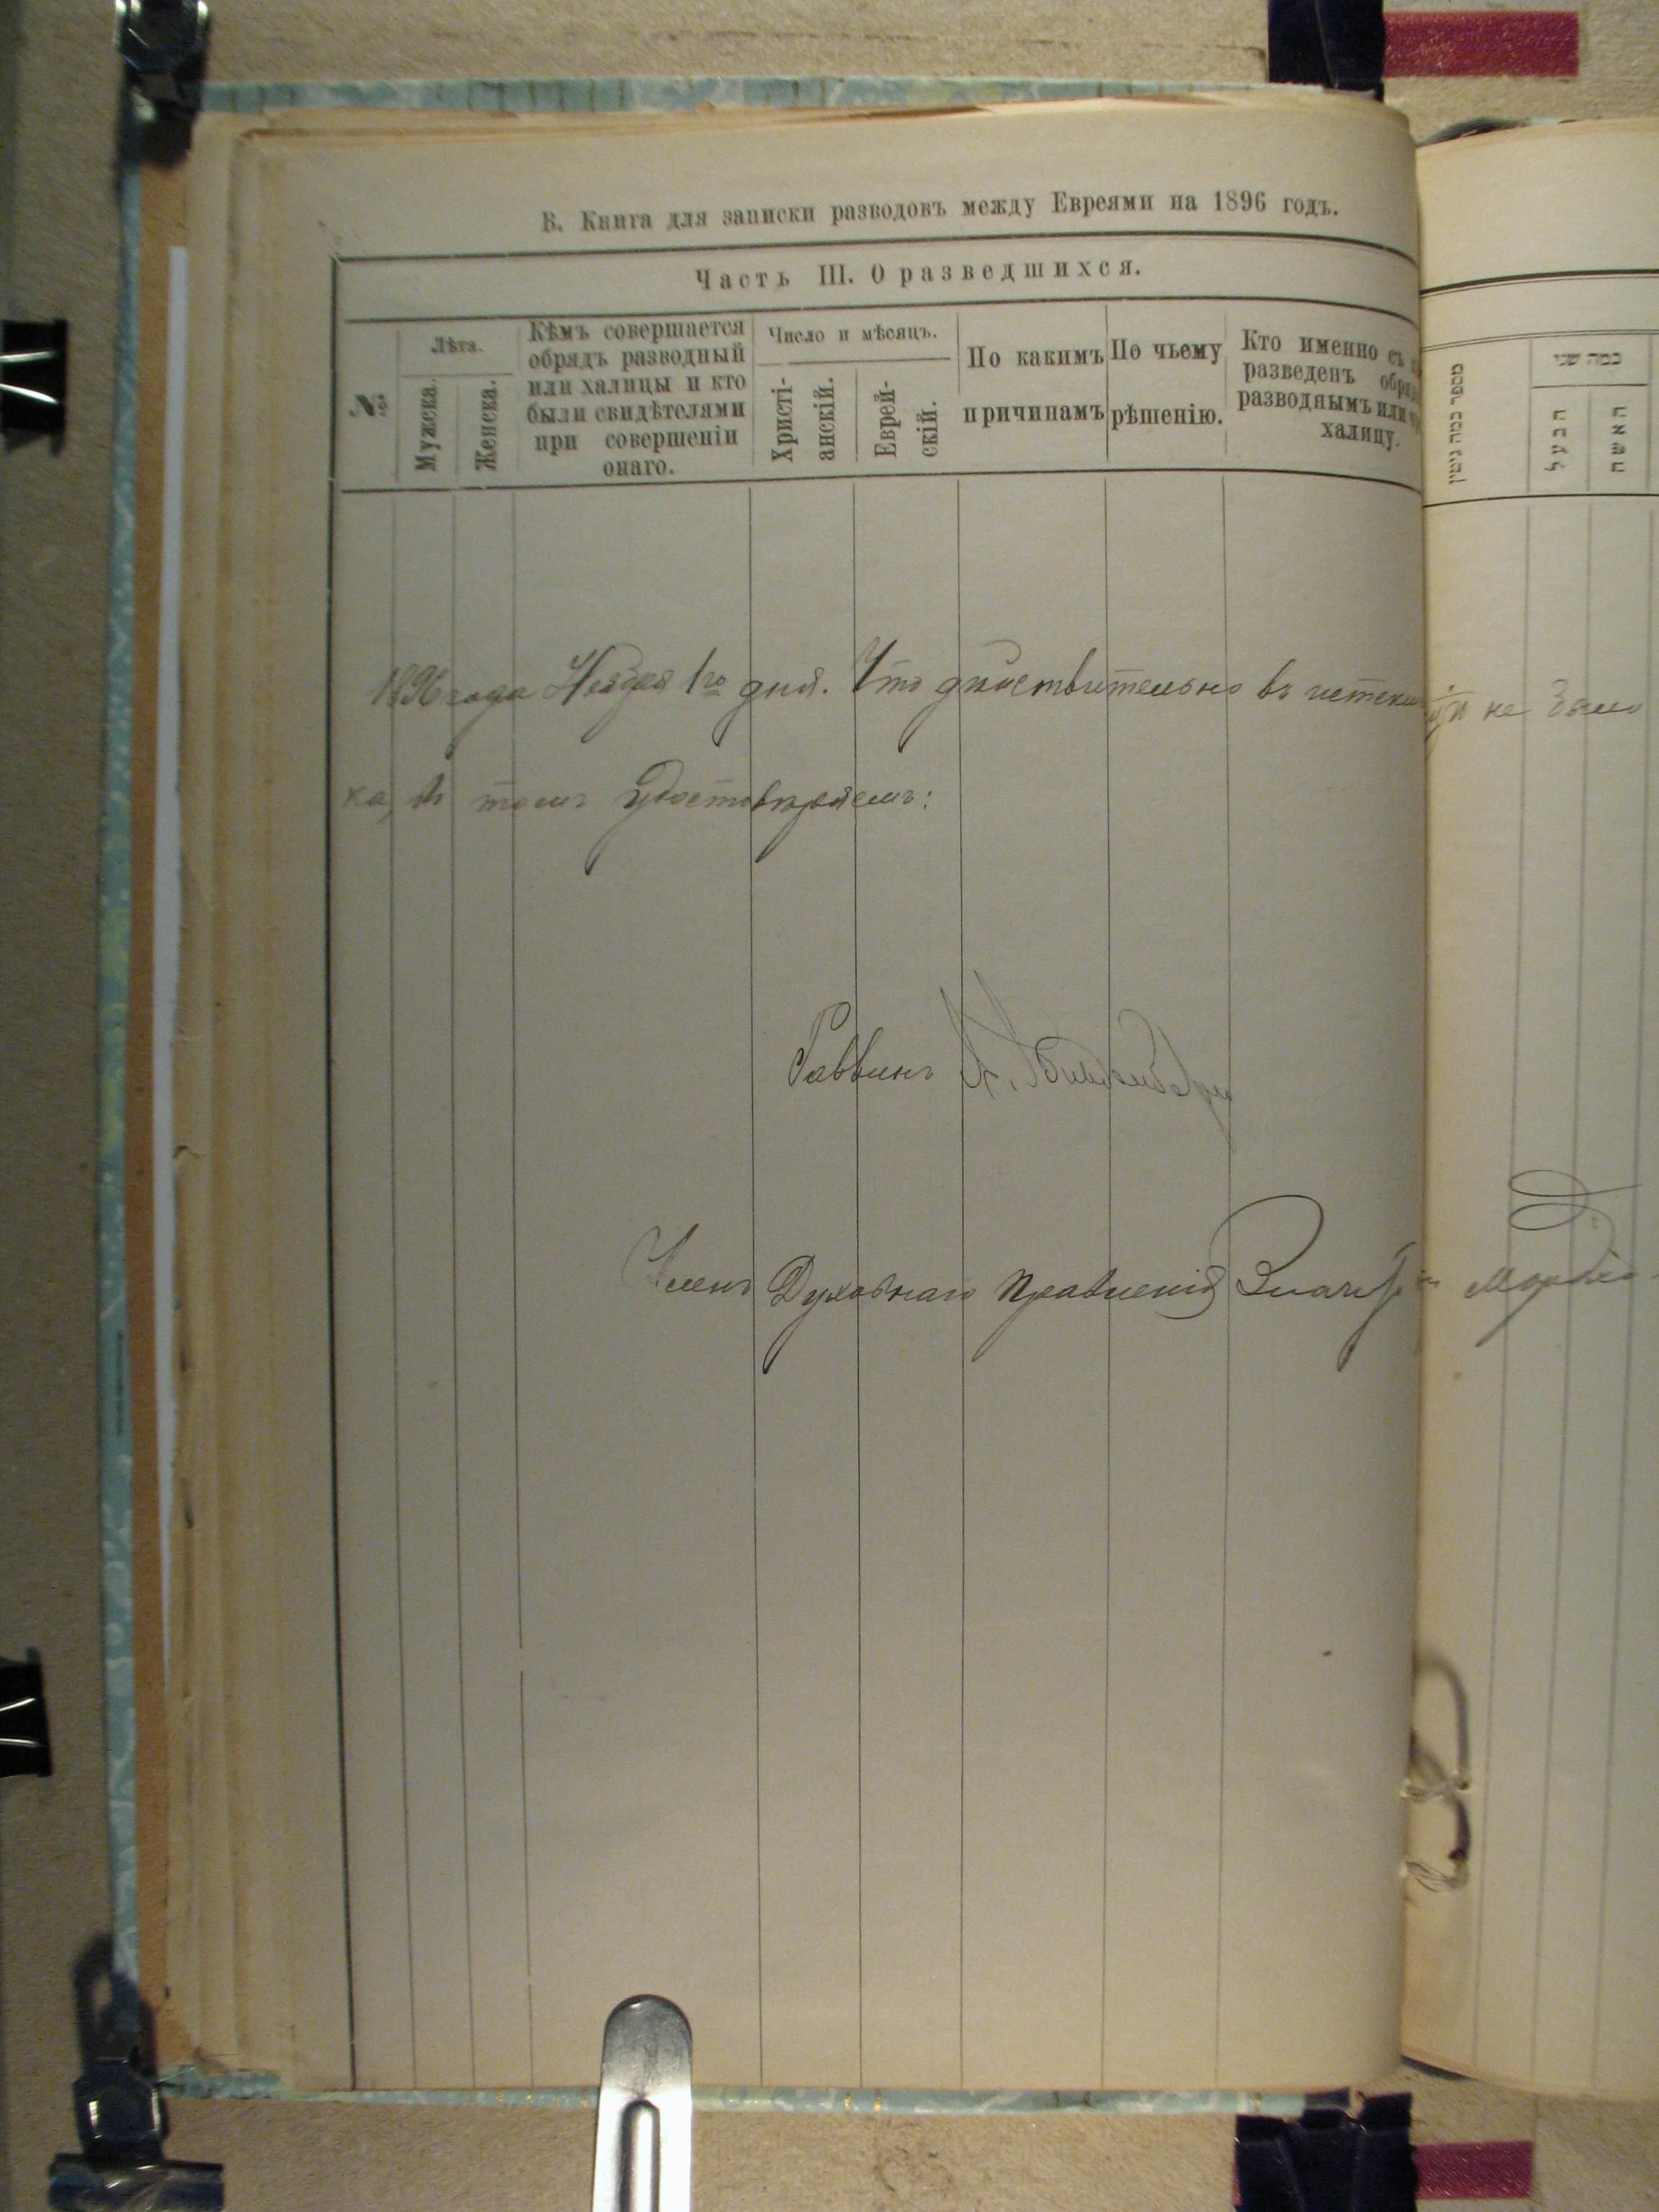 В. Книга для записки разводовъ между Евреями на 1896 годъ.
Часть III. О разведшихся.
№
Лѣта.
Мужска.
Женска.
Кѣмъ совершается
обрядъ разводный
или халицы и кто
были свидѣтелями
при совершеніи
онаго.
Число и мѣсяцъ.
Христі-
анскій.
Еврей-
скій.
По какимъ
причинамъ
По чьему
рѣшенію.
Кто именно съ
разведенъ
разводнымъ или
халицу.
מספר כמה גיטין
כמה שני
הבעל
האשה
1896 года Ноября 1го дня. Что дѣйствительно въ не было
ка, въ томъ удостовѣряемъ:
Раввинъ А.
Членъ Духовнаго Правленія